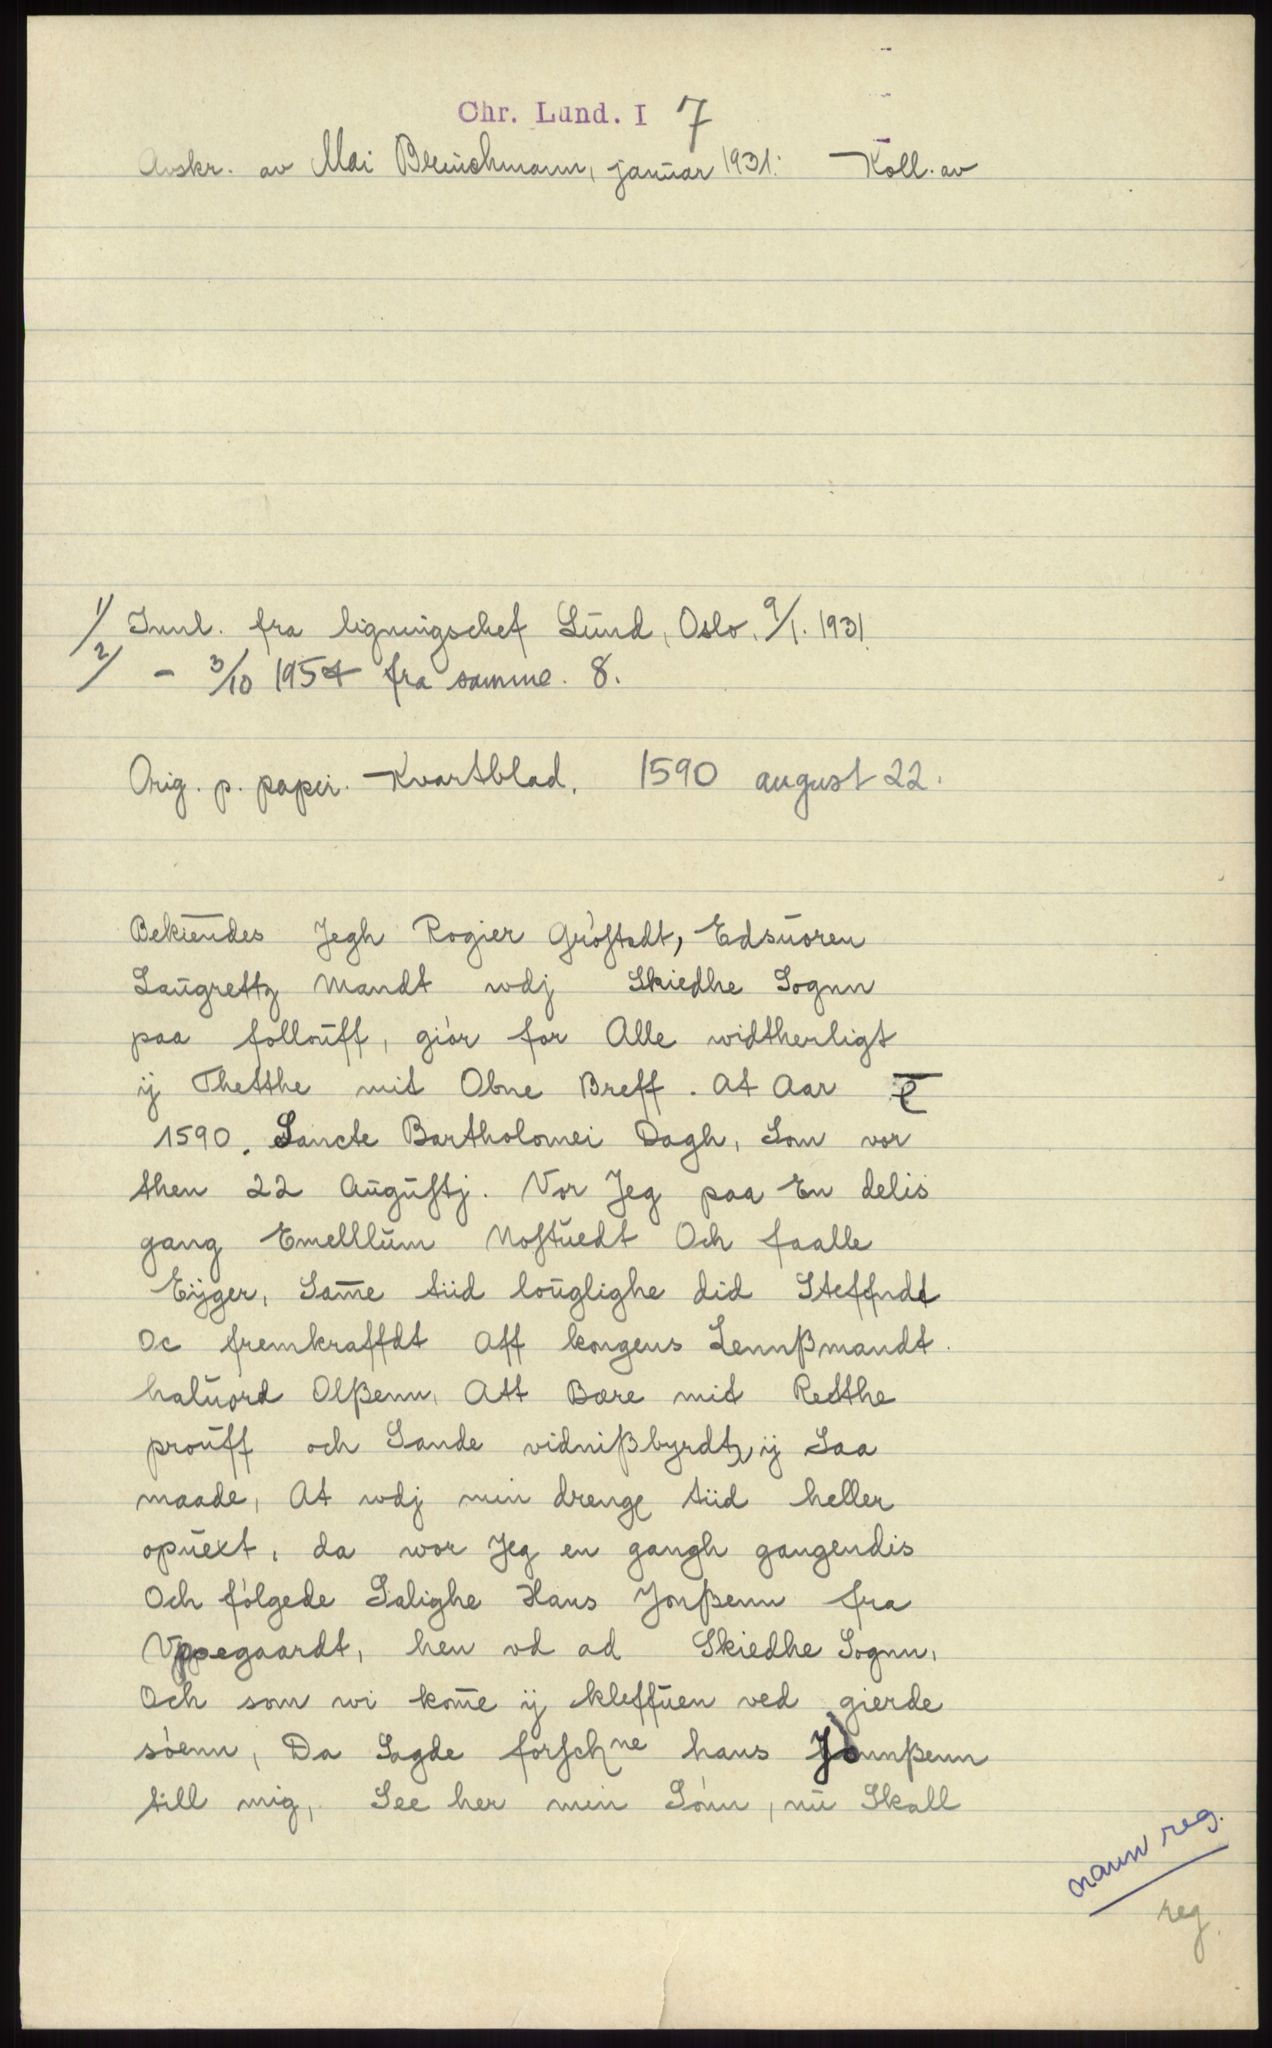 Chr. Lund. I 7
Avskr. av Mai Breuchmann, januar 1931. Koll. av
1/ Innl. fra ligningschef Lund, Oslo, 9/1. 1931
2/ - 3/10 1954 fra samme. 8.
Orig. p. papir. Kvartblad. 1590 august 22.
Bekiendes Jegh Rogier Gróftadt, Edsuoren
Laugrettz Mandt wdj Skiedhe Sognn
paa follouff, giór for Alle widtherligt
ij Thetthe mit Obne Breff. At Aar
1590. Sancte Bartholomei Dagh, Som vor
then 22 Auguftj. Vor Jeg paa En delis
gang Emelllum Noftuedt Och faalle
Eijger, Same tiid louglighe did Steffndt
oc fremkraffdt Aff kongens Lennßmandt
haluórd Olßenn, Att Bære mit Retthe
prouff och Sande vidnißbyrdtz ij Saa
maade, At wdj min drenge tiid heller
opuext, da wor Jeg en gangh gangendis
Och fólgede Salighe Hans Jonßenn fra
Vppegaardt, hen vd ad Skiedhe Sognn,
Och som wi kome ij kleffuen ved gierde
sóenn, Da Sagde forschne hans Jónnßenn
till mig, See her min Sónn, nu Skall
navn reg.
reg.